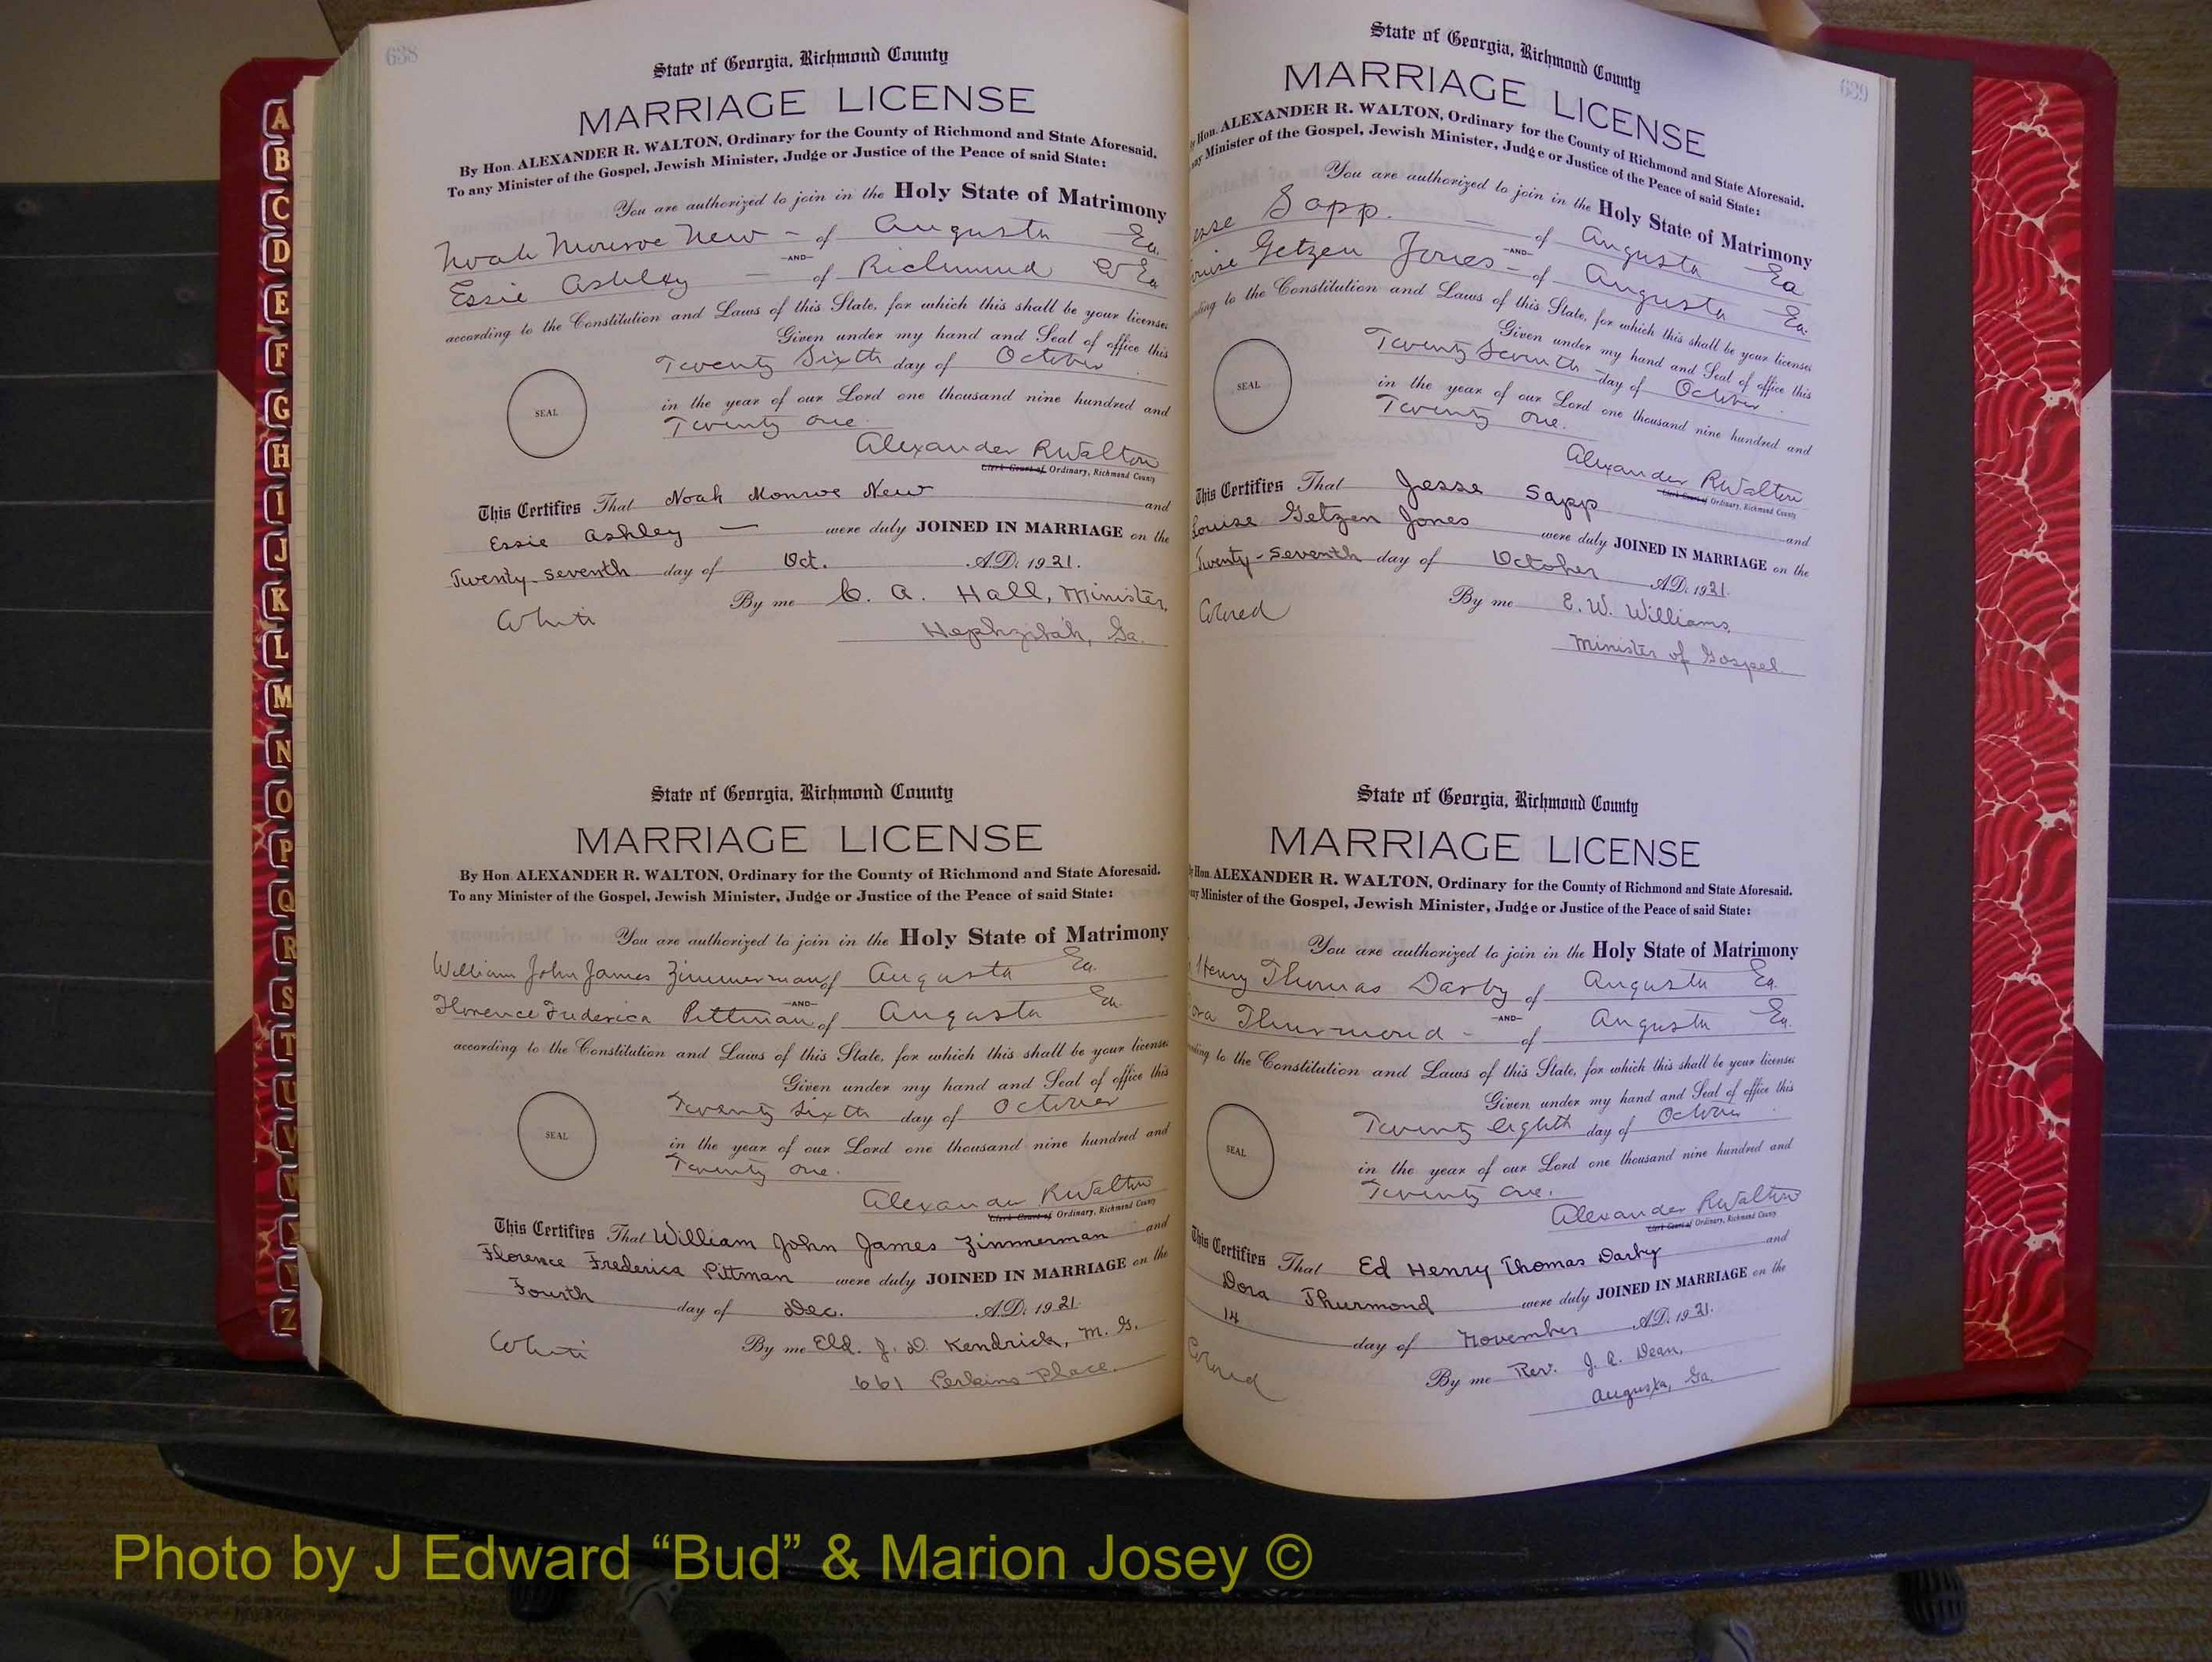 638
State of Georgia, Richmond County
MARRIAGE LICENSE
By Hon. ALEXANDER R. WALTON, Ordinary for the County of Richmond and State Aforesaid.
To any Minister of the Gospel, Jewish Minister, Judge or Justice of the Peace of said State:
You are authorized to join in the Holy State of Matrimony
Noah Monroe New - of Augusta Ga.
-AND-
Essie Ashley - of Richmond Co Ga
according to the Constitution and Laws of this State, for which this shall be your license
Given under my hand and Seal of office this
Twenty Sixth day of October
SEAL
in the year of our Lord one thousand nine hundred and
Twenty one.
Alexander R Walton
Clerk Court of Ordinary, Richmond County
This Certifies That Noah Monroe New and
Essie Ashley — were duly JOINED IN MARRIAGE on the
Twenty-seventh day of Oct. A.D. 1921.
White By me C. A. Hall, Minister,
Hephzibah, Ga.
State of Georgia, Richmond County
MARRIAGE LICENSE
By Hon. ALEXANDER R. WALTON, Ordinary for the County of Richmond and State Aforesaid.
To any Minister of the Gospel, Jewish Minister, Judge or Justice of the Peace of said State:
You are authorized to join in the Holy State of Matrimony
William John James Zimmerman of Augusta Ga.
-AND-
Florence Frederica Pittman of Augusta Ga.
according to the Constitution and Laws of this State, for which this shall be your license
Given under my hand and Seal of office this
Twenty Sixth day of October
SEAL
in the year of our Lord one thousand nine hundred and
Twenty one.
Alexander R Walton
Clerk Court of Ordinary, Richmond County
This Certifies That William John James Zimmerman and
Florence Frederica Pittman were duly JOINED IN MARRIAGE on the
Fourth day of Dec. A.D. 1921.
White By me Eld. J. D. Kendrick, M. G.
661 Perkins Place
639
State of Georgia, Richmond County
MARRIAGE LICENSE
Hon. ALEXANDER R. WALTON, Ordinary for the County of Richmond and State Aforesaid.
Minister of the Gospel, Jewish Minister, Judge or Justice of the Peace of said State:
You are authorized to join in the Holy State of Matrimony
Sapp. — of Augusta Ga
-AND-
Getzen Jones - of Augusta Ga.
to the Constitution and Laws of this State, for which this shall be your license
Given under my hand and Seal of office this
Twenty Seventh day of October
SEAL
in the year of our Lord one thousand nine hundred and
Twenty one.
Alexander R Walton
Clerk Court of Ordinary, Richmond County
This Certifies That Jesse Sapp and
Louise Getzen Jones were duly JOINED IN MARRIAGE on the
Twenty-seventh day of October A.D. 1921.
Colored By me E. W. Williams,
Minister of Gospel.
State of Georgia, Richmond County
MARRIAGE LICENSE
Hon. ALEXANDER R. WALTON, Ordinary for the County of Richmond and State Aforesaid.
Minister of the Gospel, Jewish Minister, Judge or Justice of the Peace of said State:
You are authorized to join in the Holy State of Matrimony
Henry Thomas Darby of Augusta Ga.
-AND-
Thurmond - of Augusta Ga.
to the Constitution and Laws of this State, for which this shall be your license
Given under my hand and Seal of office this
Twenty eighth day of October
SEAL
in the year of our Lord one thousand nine hundred and
Twenty one.
Alexander R Walton
Clerk Court of Ordinary, Richmond County
This Certifies That Ed Henry Thomas Darby and
Dora Thurmond were duly JOINED IN MARRIAGE on the
14 day of November A.D. 1921.
Colored By me Rev. J. A. Dean,
Augusta, Ga.
A
B
C
D
E
F
G
H
I
J
K
L
M
N
O
P
Q
R
S
T
U
V
Z
Photo by J Edward “Bud” & Marion Josey ©